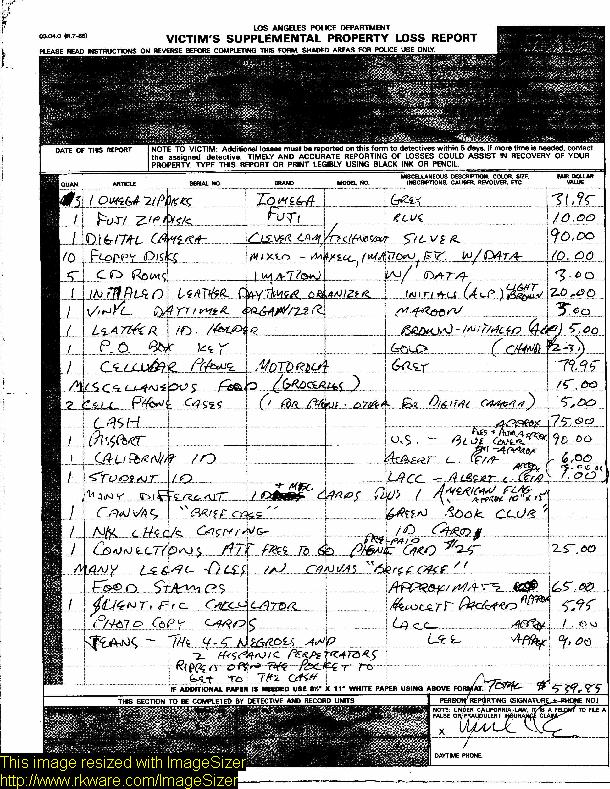 LOS ANGELES POLICE DEPARTMENT
VICTIM'S SUPPLEMENTAL PROPERTY LOSS REPORT
PLEASE READ INSTRUCTIONS ON REVERSE BEFORE COMPLETING THIS FORM. SHADED AREAS FOR POLICE USE ONLY.
DATE OF THIS REPORT
NOTE TO VICTIM: Additional losses must be reported on this form to detectives within 5 days. If more time is needed, contact
the assigned detective. TIMELY AND ACCURATE REPORTING OF LOSSES COULD ASSIST IN RECOVERY OF YOUR
PROPERTY. TYPE THIS REPORT OR PRINT LEGIBLY USING BLACK INK OR PENCIL.
QUAN ARTICLE SERIAL NO. BRAND MODEL NO. MISCELLANEOUS DESCRIPTION, COLOR, SIZE, INSCRIPTIONS, CALIBER, REVOLVER, ETC. FAIR DOLLAR VALUE
3 IOMEGA ZIPDISKS IOMEGA GREY 31.95
1 FUJI ZIPDISK FUJI BLUE 10.00
1 DIGITAL CAMERA CLEVER CAM / SILVER 90.00
10 FLOPPY DISKS MIXED - MAXELL, IMATION, ETC. W/ DATA 10.00
5 CD ROMS IMATION W/ DATA 3.00
1 INITIALED LEATHER DAYTIMER ORGANIZER INITIALS (ALP) LIGHT BROWN 20.00
1 VINYL DAYTIMER ORGANIZER MAROON 3.00
1 LEATHER ID HOLDER BROWN - INITIALED (ALP) 5.00
1 P.O. BOX KEY GOLD
1 CELLULAR PHONE MOTOROLA GREY 79.95
MISCELLANEOUS FOOD (GROCERIES) 15.00
2 CELL PHONE CASES (1 FOR PHONE - OTHER FOR DIGITAL CAMERA) 5.00
CASH APPROX 75.00
1 PASSPORT U.S. - BLUE COVER 90.00
1 CALIFORNIA ID ALBERT L. 6.00
1 STUDENT ID LACC - ALBERT L. 7.00
MANY DIFFERENT CARDS PLUS 1 AMERICAN FLAG
APPROX 10" x 15"
1 CANVAS "BRIEFCASE" GREEN BOOK CLUB"
1 NIX CHECK CASHING ID CARD
1 CONNECTIONS ATT FREE TO GO PRE-PAID PHONE CARD $25 25.00
MANY LEGAL FILES IN CANVAS "BRIEFCASE"!!
FOOD STAMPS APPROXIMATE 65.00
1 SCIENTIFIC CALCULATOR HEWLETT PACKARD APPROX 5.95
PHOTO COPY CARDS LACC APPROX 1.00
JEANS - THE 4-5 NEGROES AND LEE APPROX 9.00
2 HISPANIC PERPETRATORS
RIPPED OPEN THE POCKET TO
GET TO THE CASH
IF ADDITIONAL PAPER IS NEEDED USE 8½" X 11" WHITE PAPER USING ABOVE FORMAT. TOTAL $ 539.85
THIS SECTION TO BE COMPLETED BY DETECTIVE AND RECORD UNITS
PERSON REPORTING (SIGNATURE & PHONE NO.)
NOTE: UNDER CALIFORNIA LAW, IT IS A FELONY TO FILE A
FALSE OR FRAUDULENT INSURANCE CLAIM.
X
DAYTIME PHONE:
This image resized with ImageSizer
http://www.rkware.com/ImageSizer